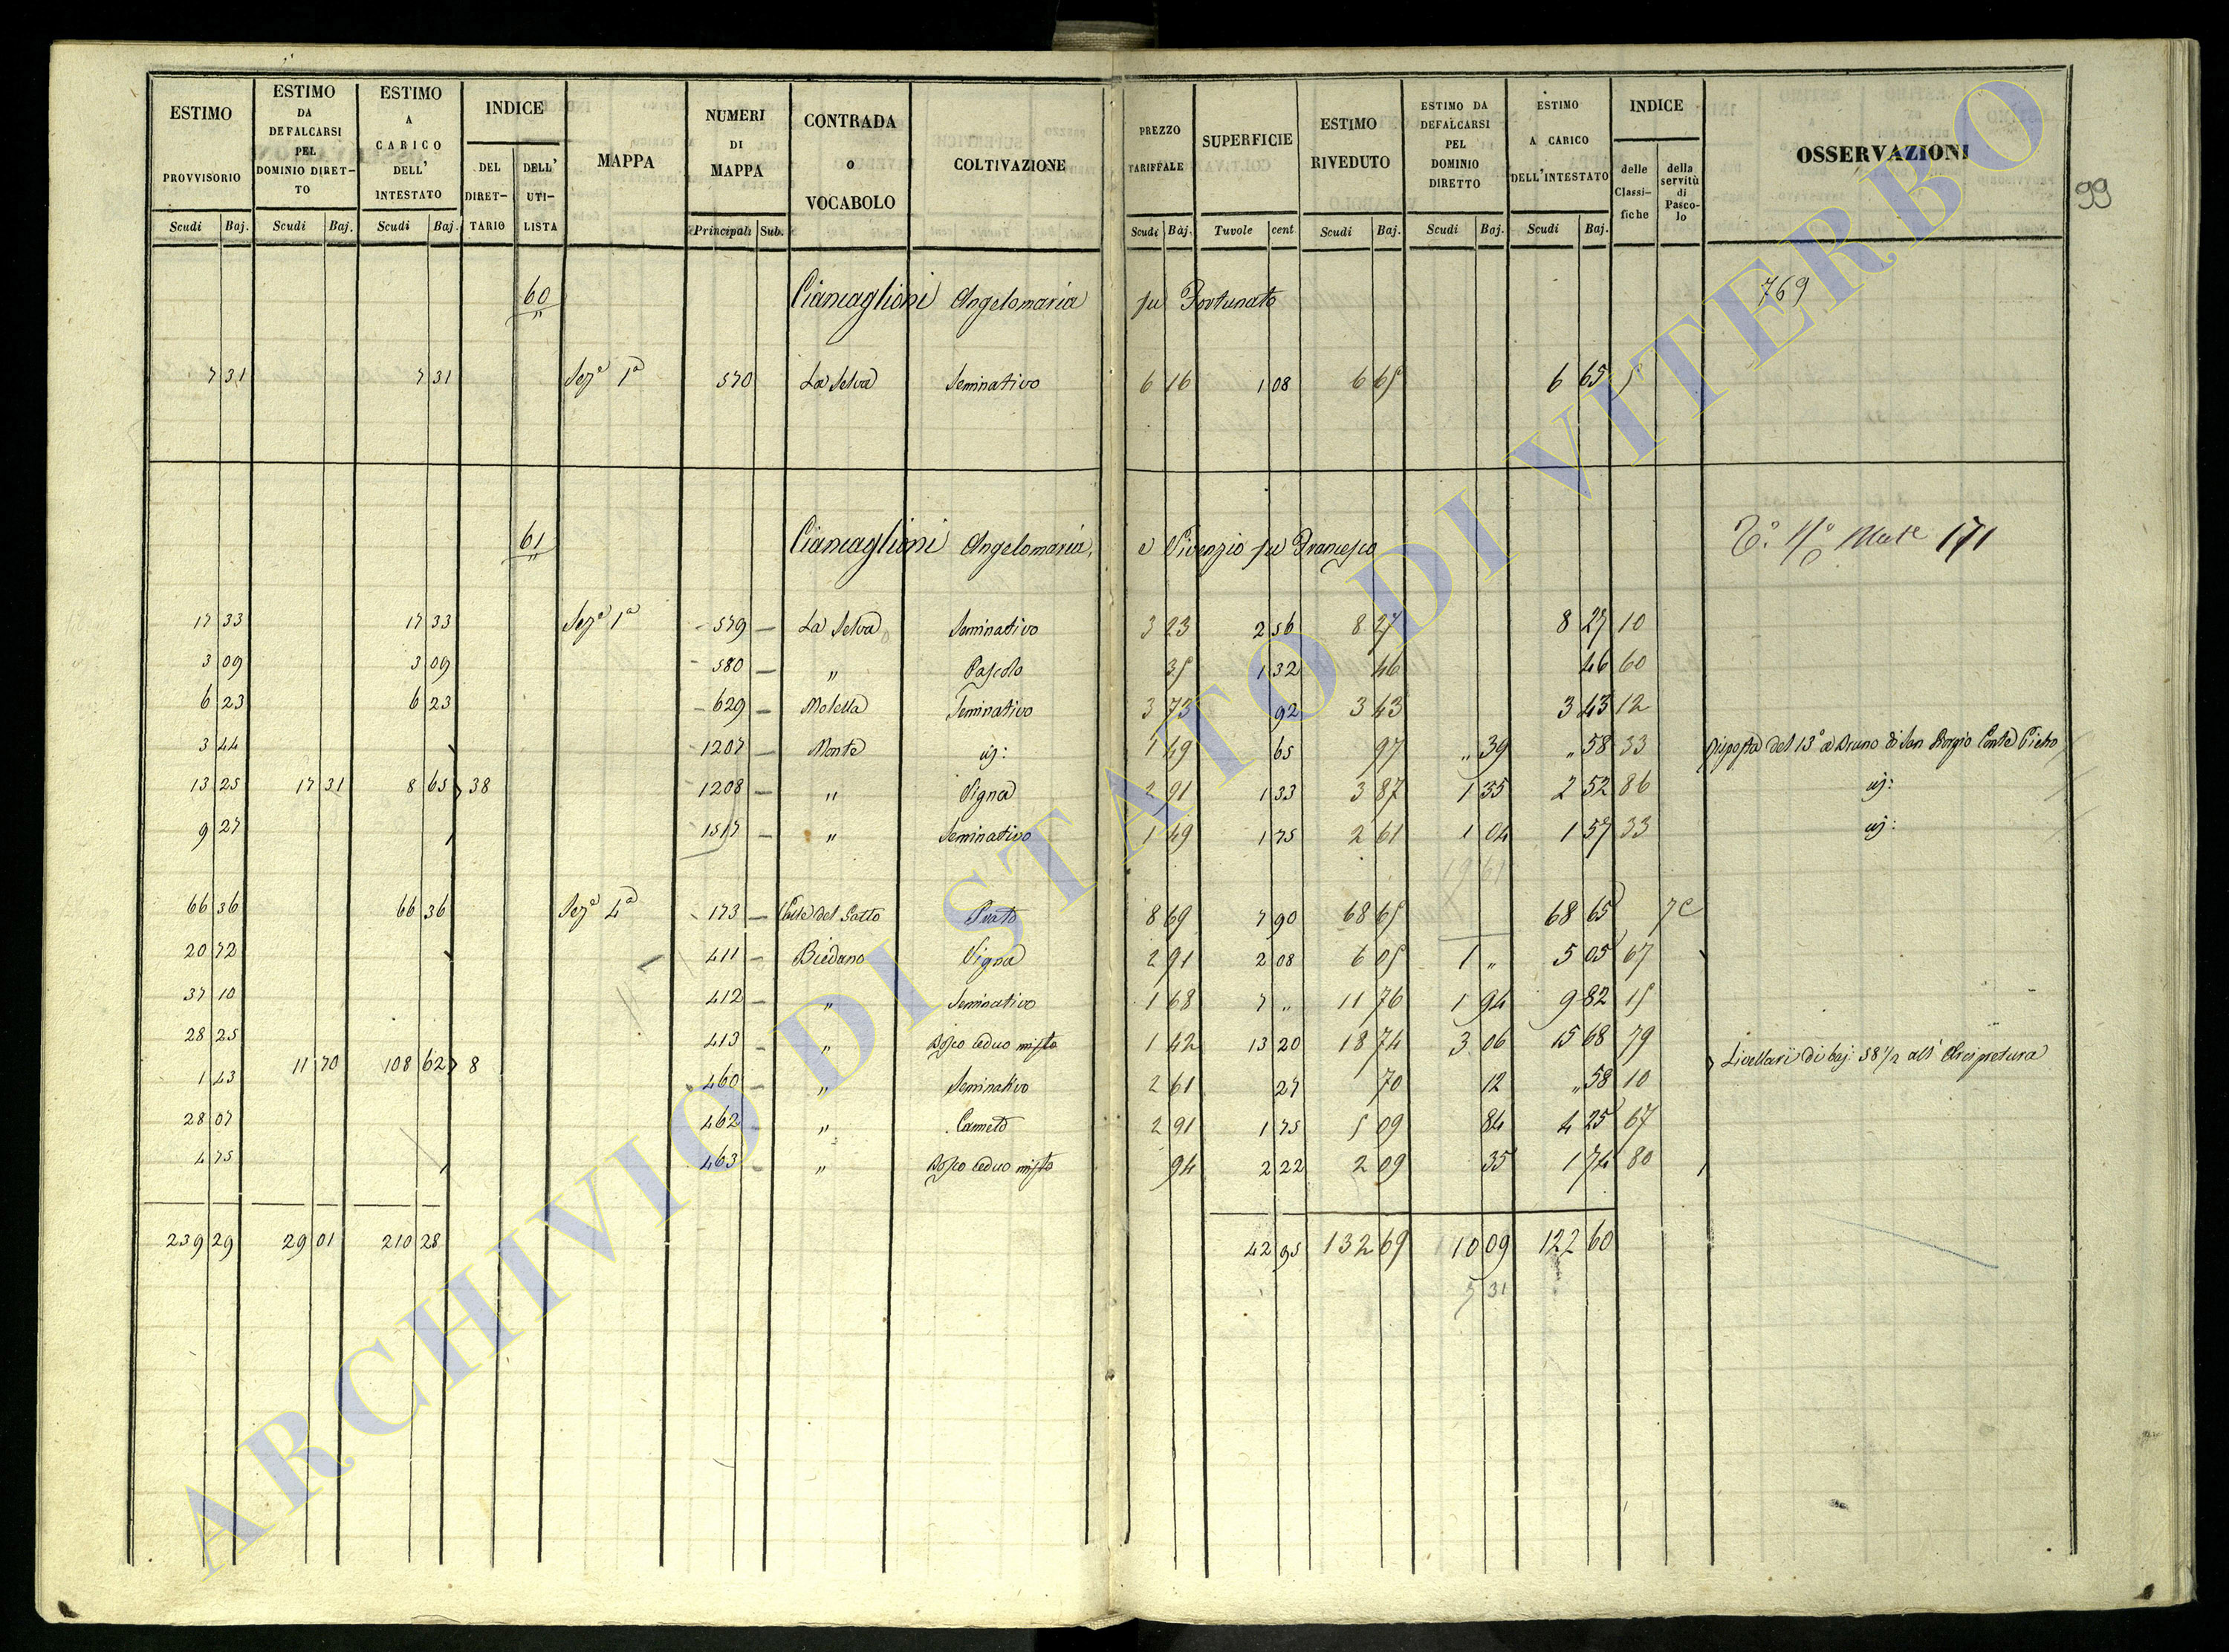 ESTIMO PROVVISORIO Scudi Baj.
ESTIMO DA DEFALCARSI PEL DOMINIO DIRETTO Scudi Baj.
ESTIMO A CARICO DELL' INTESTATO Scudi Baj.
INDICE DEL DIRETTARIO DELL' UTILISTA
MAPPA
NUMERI DI MAPPA Principali Sub.
CONTRADA o VOCABOLO
COLTIVAZIONE
PREZZO TARIFFALE Scudi Baj.
SUPERFICIE Tavole cent
ESTIMO RIVEDUTO Scudi Baj.
ESTIMO DA DEFALCARSI PEL DOMINIO DIRETTO Scudi Baj.
ESTIMO A CARICO DELL'INTESTATO Scudi Baj.
INDICE delle Classifiche della servitù di Pascolo
OSSERVAZIONI
99
60 " Ciancaglioni Angelomaria fu Fortunato 769
7 31 7 31 Sez.e 1a 570 La Selva Seminativo 6 16 1 08 6 65 6 65 5
61 " Ciancaglioni Angelomaria, e Vivenzio fu Francesco 171
17 33 17 33 Sez.e 1a 579 La Selva Seminativo 3 23 2 56 8 27 8 27 10
3 09 3 09 580 " Pascolo 35 1 32 46 46 60
6 23 6 23 629 Moletta Seminativo 3 73 92 3 43 3 43 12
3 44 1207 Monte id: 1 49 65 97 " 39 " 58 33 risposta del 13° a Bruno di San Giorgio Conte Pietro
13 25 17 31 8 65 38 1208 " Vigna 2 91 1 33 3 87 1 35 2 52 86 id:
9 27 1517 " Seminativo 1 49 1 75 2 61 1 04 1 57 33 id:
66 36 66 36 Sez.e 4a 173 Valle del Gatto Prato 8 69 7 90 68 65 68 65 7 C
20 72 411 Biedano Vigna 2 91 2 08 6 05 1 " 5 05 67
37 10 412 " Seminativo 1 68 7 " 11 76 1 94 9 82 15
28 25 413 " Bosco ceduo misto 1 42 13 20 18 74 3 06 15 68 79
11 70 108 62 8 Livellari di baj: 58 1/2 all' Arcipretura
1 43 460 " Seminativo 2 61 27 70 12 " 58 10
28 07 462 " Canneto 2 91 1 75 5 09 84 4 25 67
4 75 463 " Bosco ceduo misto 94 2 22 2 09 35 1 74 80
239 29 29 01 210 28 42 95 132 69 10 09 122 60
5 31
ARCHIVIO DI STATO DI VITERBO